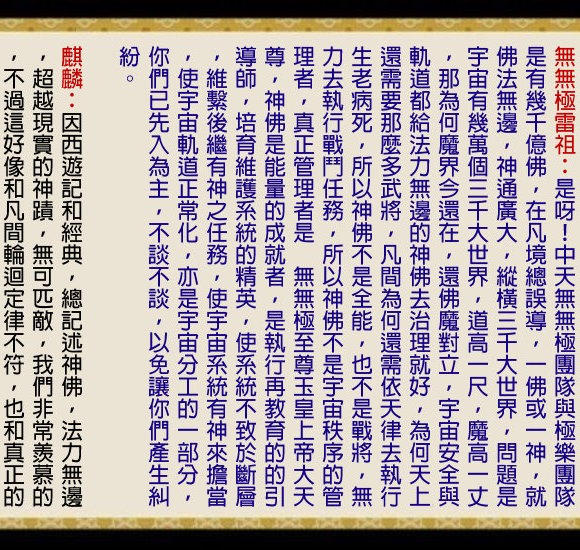 無無極雷祖：是呀！中天無無極團隊與極樂團隊
是有幾千億佛，在凡境總誤導，一佛或一神，就
佛法無邊，神通廣大，縱橫三千大世界，問題是
宇宙有幾萬個三千大世界，道高一尺，魔高一丈
，那為何魔界今還在，還佛魔對立，宇宙安全與
軌道都給法力無邊的神佛去治理就好，為何天上
還需要那麼多武將，凡間為何還需依天律去執行
生老病死，所以神佛不是全能，也不是戰將，無
力去執行戰鬥任務，所以神佛不是宇宙秩序的管
理者，真正管理者是　無無極至尊玉皇上帝大天
尊，神佛是能量的成就者，是執行再教育的的引
導師，培育維護系統的精英，使系統不致於斷層
，維繫後繼有神之任務，使宇宙系統有神來擔當
，使宇宙軌道正常化，亦是宇宙分工的一部分，
你們已先入為主，不談不談，以免讓你們產生糾
紛。
麒麟：因西遊記和經典，總記述神佛，法力無邊
，超越現實的神蹟，無可匹敵，我們非常羨慕的
，不過這好像和凡間輪迴定律不符，也和真正的